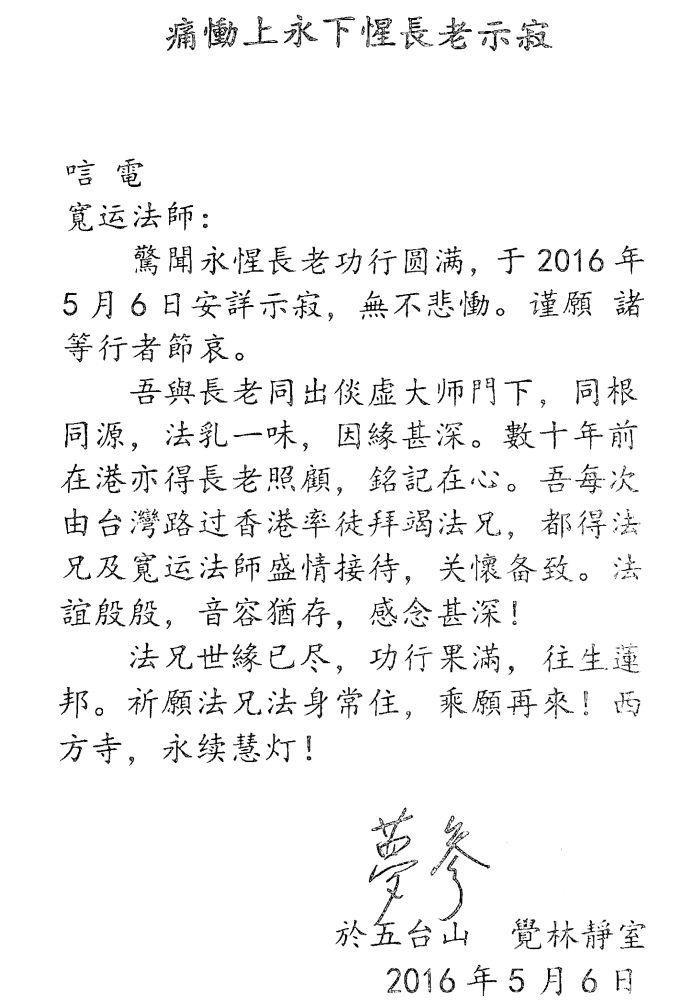 痛慟上永下惺長老示寂
唁 電
寬运法師：
驚聞永惺長老功行圆满，于 2016 年
5 月 6 日安詳示寂，無不悲慟。谨願 諸
等行者節哀。
吾與長老同出倓虛大师門下，同根
同源，法乳一味，因緣甚深。數十年前
在港亦得長老照顧，銘記在心。吾每次
由台灣路过香港率徒拜竭法兄，都得法
兄及寬运法師盛情接待，关懷备致。法
誼殷殷，音容猶存，感念甚深！
法兄世緣已尽，功行果滿，往生蓮
邦。祈願法兄法身常住，乘願再來！西
方寺，永续慧灯！
夢參
於五台山 覺林靜室
2016 年 5 月 6 日